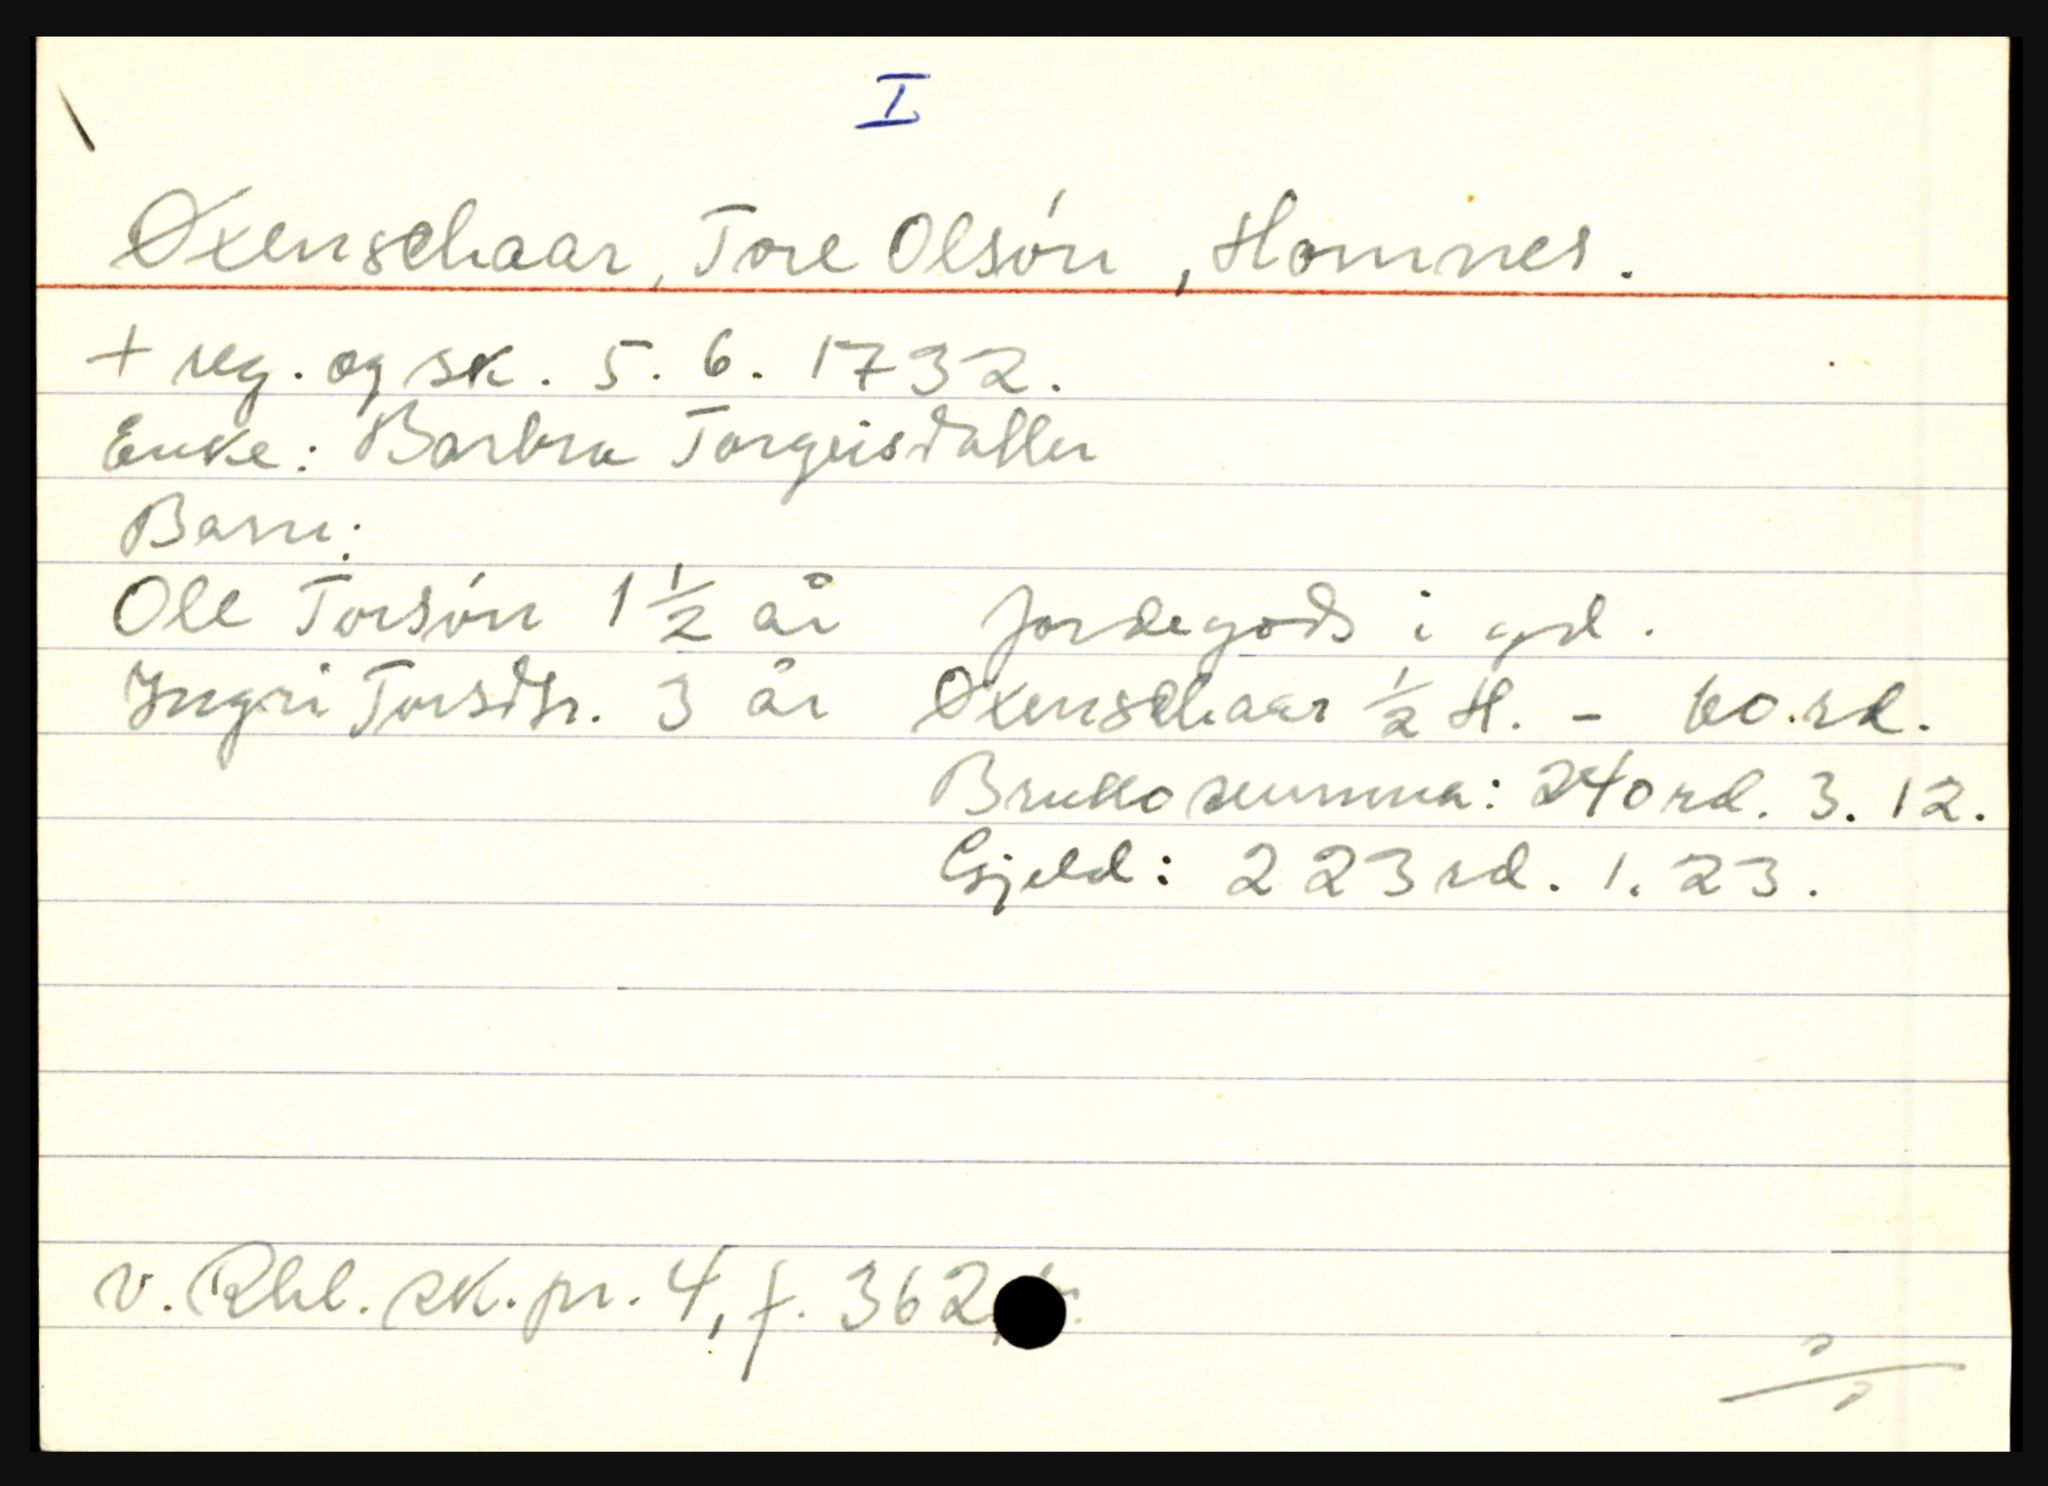 I
Øxenschaar, Tore Olsón, Homnes.
+ reg. og sk. 5. 6. 1732.
Enke: Barbra Torgeisdatter
Barn:
Ole Torsón 1 1/2 år
Ingri Torsdtr. 3 år
jordegods i grd.
Øxenschaar 1/2 H. - 60.rd.
Brutto summa: 240 rd. 3. 12.
Gjeld: 223 rd. 1. 23.
v. Rbl. sk. pr. 4, f. 362